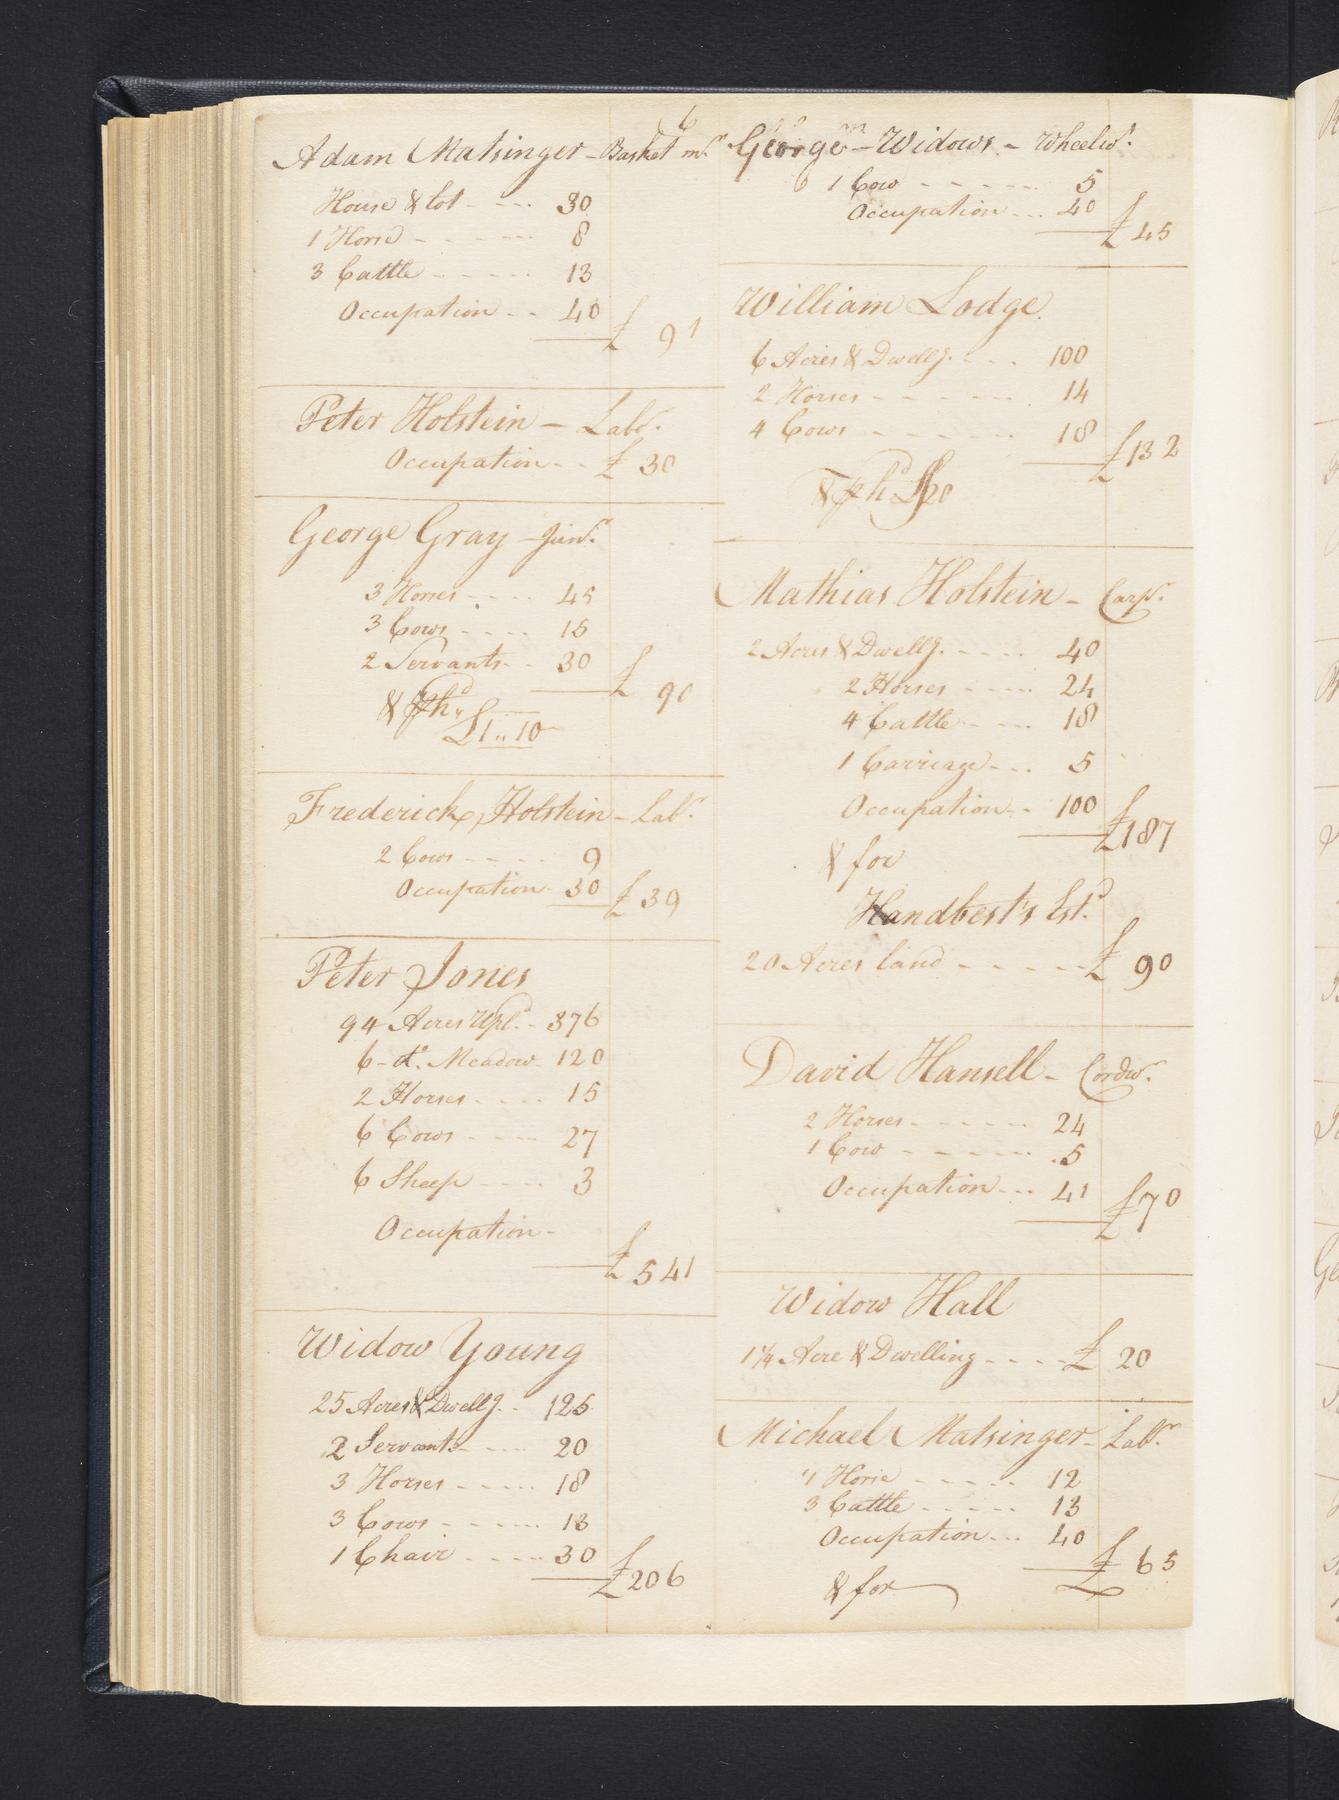 6
Adam Matsinger - Basket mr.
House & lot - - - - 30
1 Horse - - - - - - 8
3 Cattle - - - - - 13
Occupation - - 40
£ 91
Peter Holstein - Labr.
Occupation - - £ 30
George Gray - Junr.
3 Horses - - - - 45
3 Cows - - - - 15
2 Servants - - 30
£ 90
& Phd
£1..10
Frederick Holstein - Labr.
2 Cows - - - - 9
Occupation - 30 £ 39
Peter Jones
94 Acres Upld. - 376
6 - do. Meadow - 120
2 Horses - - - - 15
6 Cows - - - - 27
6 Sheep - - - - 3
Occupation -
£ 541
Widow Young
25 Acres & Dwellg. - - 125
2 Servants - - - - 20
3 Horses - - - - - 18
3 Cows - - - - - - 13
1 Chair - - - - - 30
£206
George - Widows - Wheelwr.
1 Cow - - - - - - 5
Occupation - - - 40
£ 45
William Lodge
6 Acres & Dwellg. - - - 100
2 Horses - - - - - - 14
4 Cows - - - - - - 18
£132
& Phd £20
Mathias Holstein - Carpr.
2 Acres & Dwellg. - - - - 40
2 Horses - - - - - 24
4 Cattle - - - - 18
1 Carriage - - - 5
Occupation - - 100
£187
& for
Handbest's Estd
20 Acres land - - - - - £ 90
David Hansell - Cordwr.
2 Horses - - - - - - 24
1 Cow - - - - - - 5
Occupation - - - 41
£70
Widow Hall
1 1/4 Acre & Dwelling - - - - £ 20
Michael Matsinger - Labr.
1 Horse - - - - - 12
3 Cattle - - - - - 13
Occupation - - - 40
£ 65
& for